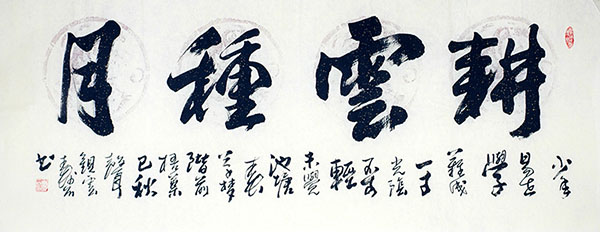 耕雲種月
少年
易老
學
難成
一寸
光陰
不可
輕
未覺
池塘
春
草夢
階前
梧葉
已秋
聲